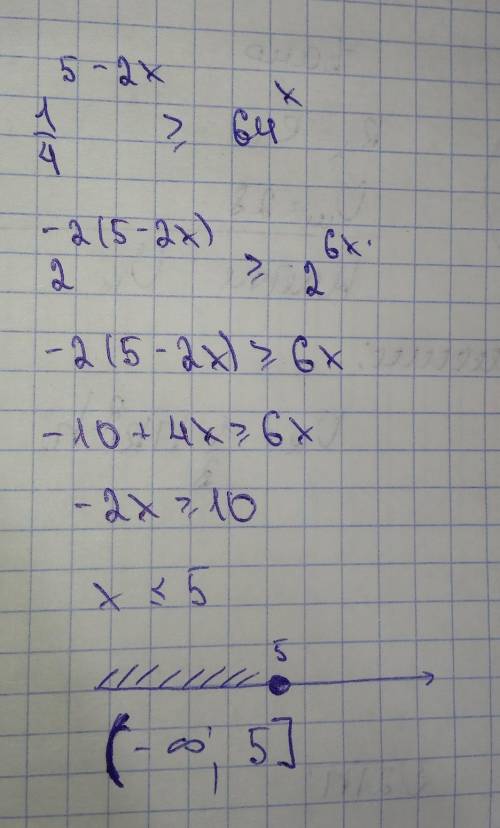 5 - 2x
1/4 ≥ 64^x
2^{-2(5-2x)} ≥ 2^{6x}.
-2(5-2x) ≥ 6x
-10 + 4x ≥ 6x
-2x ≥ 10
x ≤ 5
5
(-∞; 5]